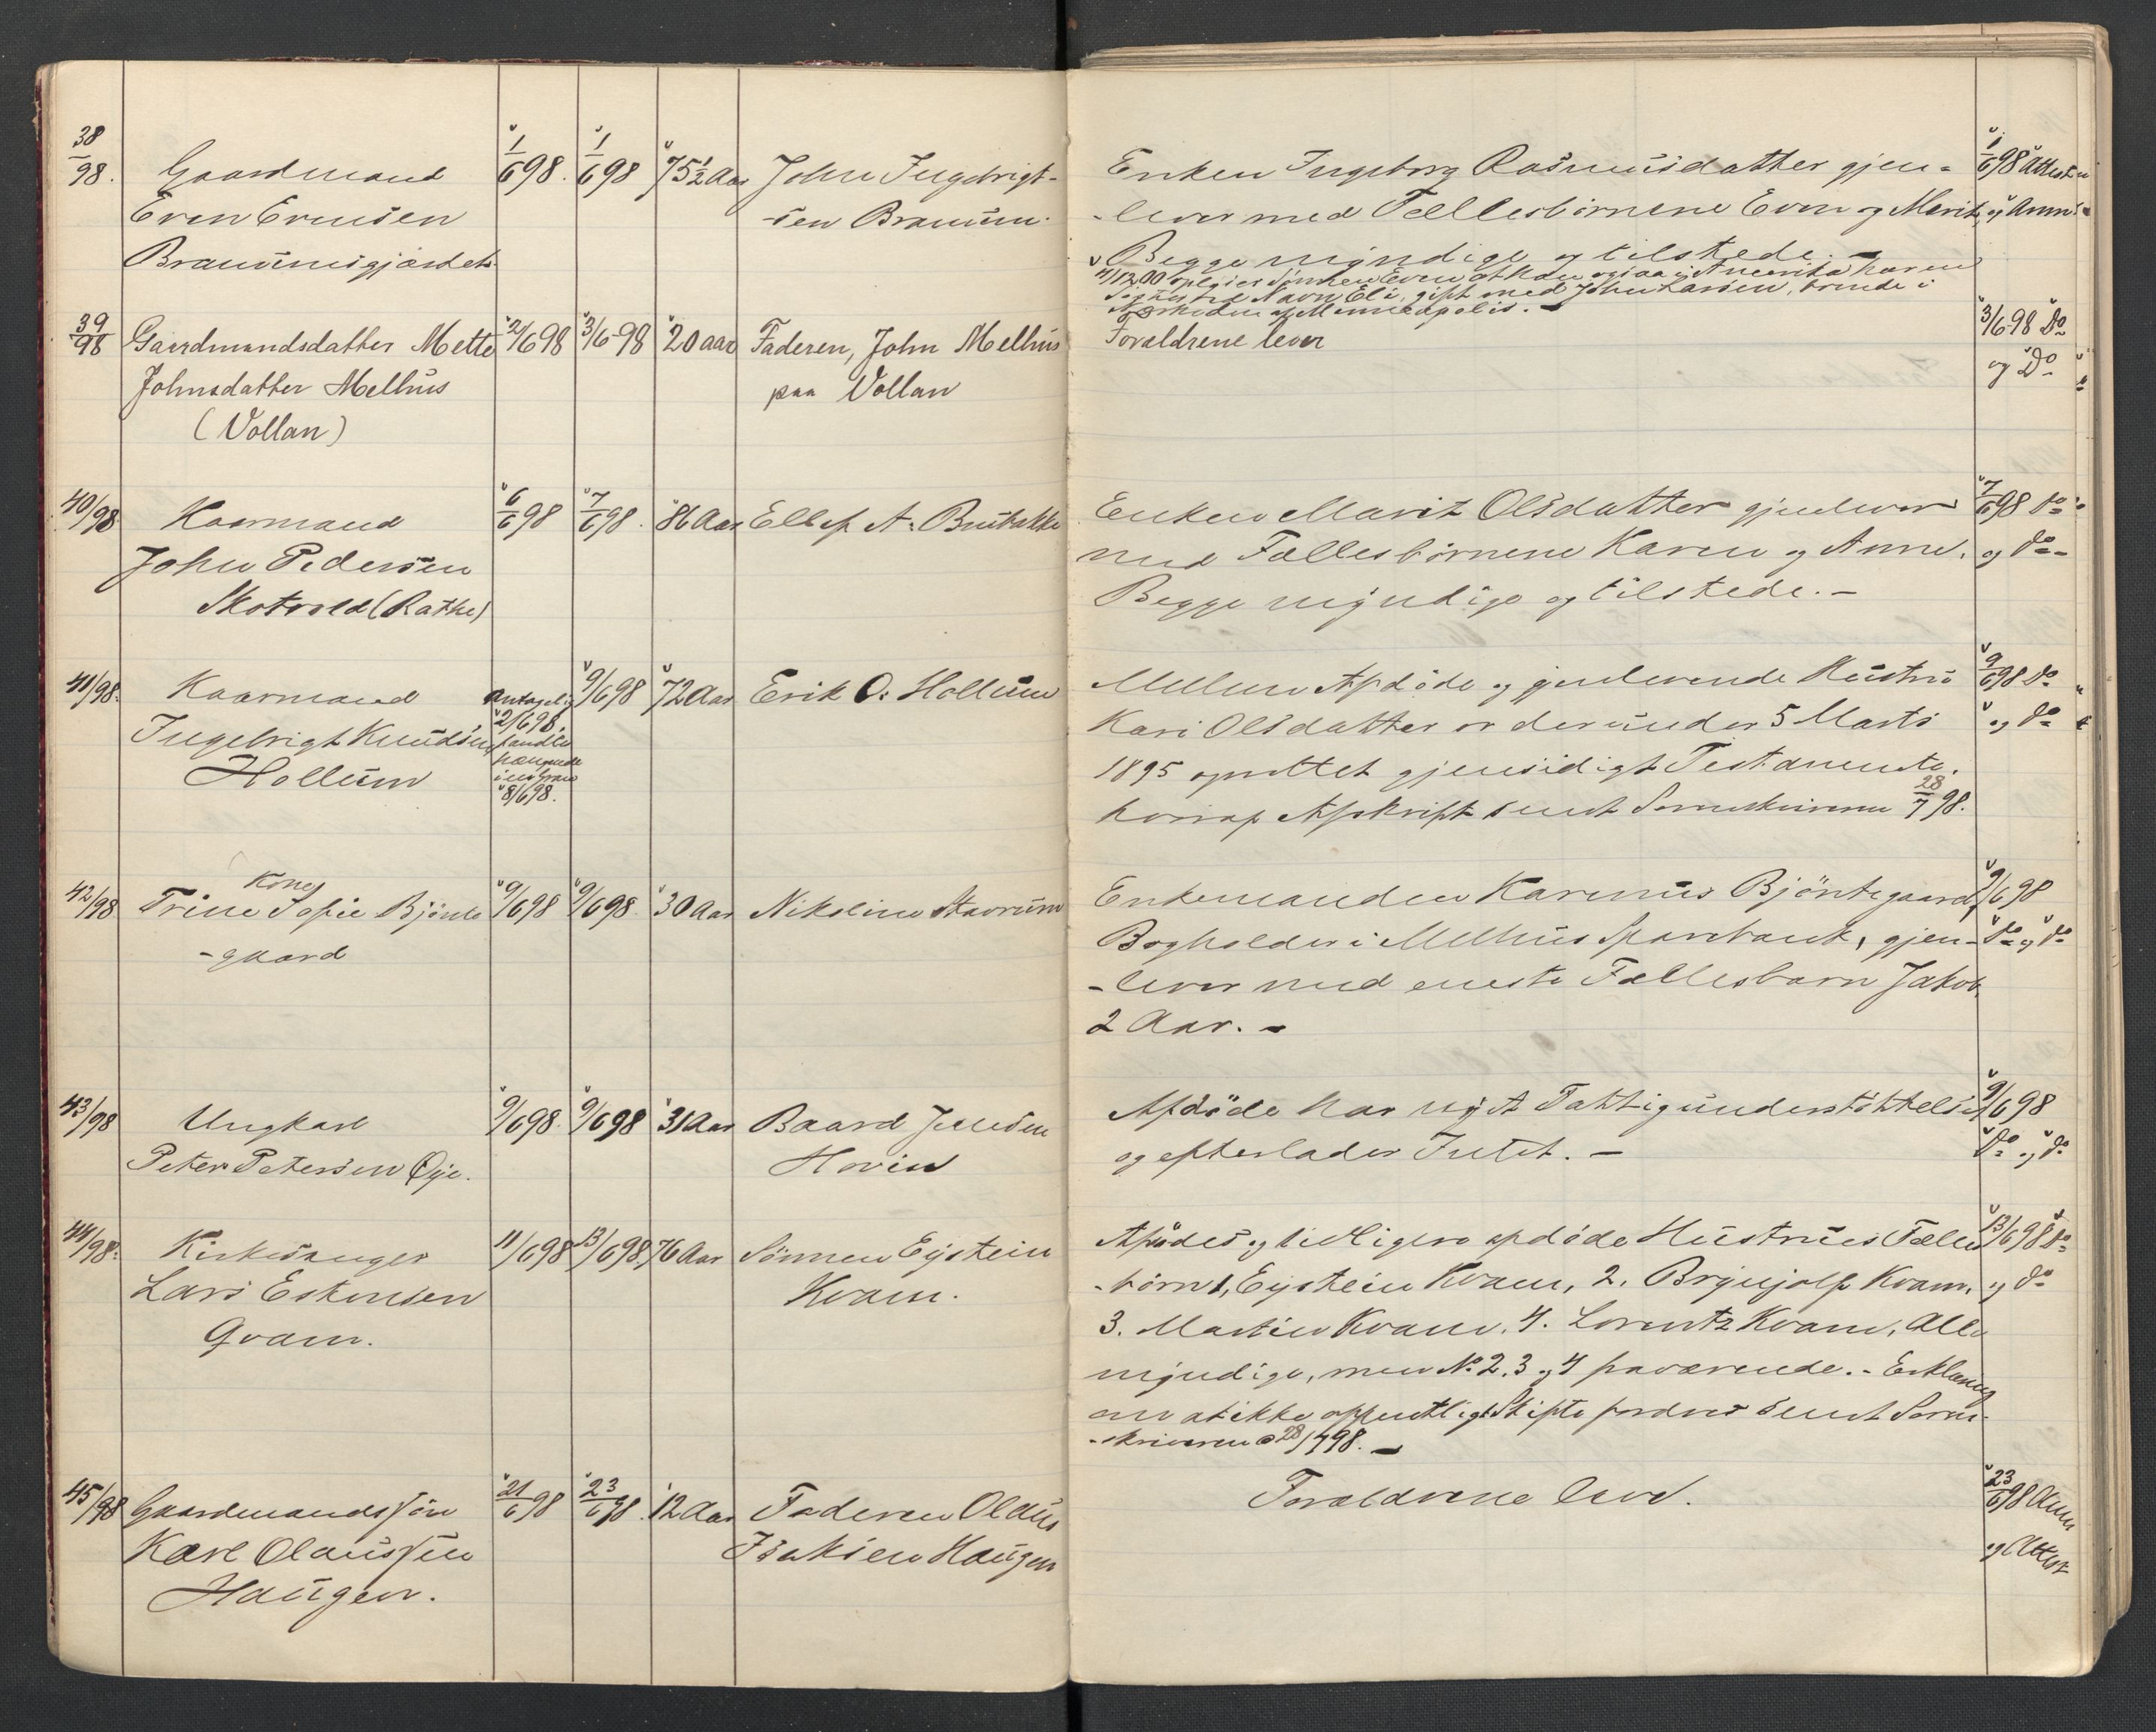 38/98. Gaardmand 1/6 98. 1/6 98 75½ Aar John Ingebrigt-
Even Evensen -sen Branum.
Branumsgjærdet.
Enken Ingeborg Rasmusdatter gjen- 1/6 98 Attest
-lever med Fællesbørnene Even og Marit, og Anm.
Begge myndige og tilstede. -
4/12 00 oplyser Sønnen Even at han ogsaa i Amerika har en
Søster ved Navn Eli, gift med John Larsen, boende i
Nærheden af Minneapolis. -
39/98 Gaardmandsdatter Mette 2/6 98 3/6-98 20 aar Faderen, John Melhus
Johnsdatter Melhus paa Vollan
(Vollan)
Forældrene lever 3/6-98 Do
og Do
40/98 Kaarmand 6/6 98 7/6 98. 86 Aar Ellef A. Brubakke
John Pedersen
Skotvold (Rathe)
Enken Marit Olsdatter gjenlever 7/6 98 do
med Fællesbørnene Karen og Anne. og do
Begge myndige og tilstede. -
41/98. Kaarmand Antagelig 9/6 98 72 Aar Erik O. Hollum
Ingebrigt Knudsen 2/6 98,
Hollum fundet
hængende
i en Gran
8/6 98.
Mellem Afdøde og gjenlevende Hustru 9/6 98 do
Kari Olsdatter er der under 5 Marts og do
1895 oprettet gjensidigt Testamente,
hvoraf Afskrift sendt Sorenskriveren 28/7 98.
42/98 Kone
Trine Sofie Bjønte 9/6 98 9/6 98 30 Aar Nikoline Stavrum
-gaard
Enkemanden Karenus Bjøntegaard, 9/6 98
Bogholder i Melhus Sparebank, gjen- do og do
-lever med eneste Fællesbarn Jakob,
2 Aar. -
43/98 Ungkarl 9/6 98. 9/6 98 31 Aar Baard Jensen
Peter Petersen Øye. Hovin
Afdøde har nydt Fattigunderstøttelse 9/6 98
og efterlader Intet. - do og do
44/98. Kirkesanger 11/6 98 13/6 98. 76 Aar Sønnen Eystein
Lars Estensen Kvam.
Qvam.
Afdødes og tidligere afdøde Hustrues Fælles 13/6 98 do
-børn 1, Eystein Kvam, 2. Brynjolf Kvam, og do
3. Martin Kvam. 4. Lorentz Kvam, Alle
myndige, men No 2. 3 og 4 fraværende. - Erklæring
om at ikke offentligt Skifte fordres sendt Soren-
-skriveren 28/7 98. -
45/98 Gaardmandssøn 21/6 98 23/6 98. 12 Aar Faderen Olaus
Karl Olaussen Isaksen Haugen
Haugen.
Forældrene leve. 23/6 98 Anm
og Attest